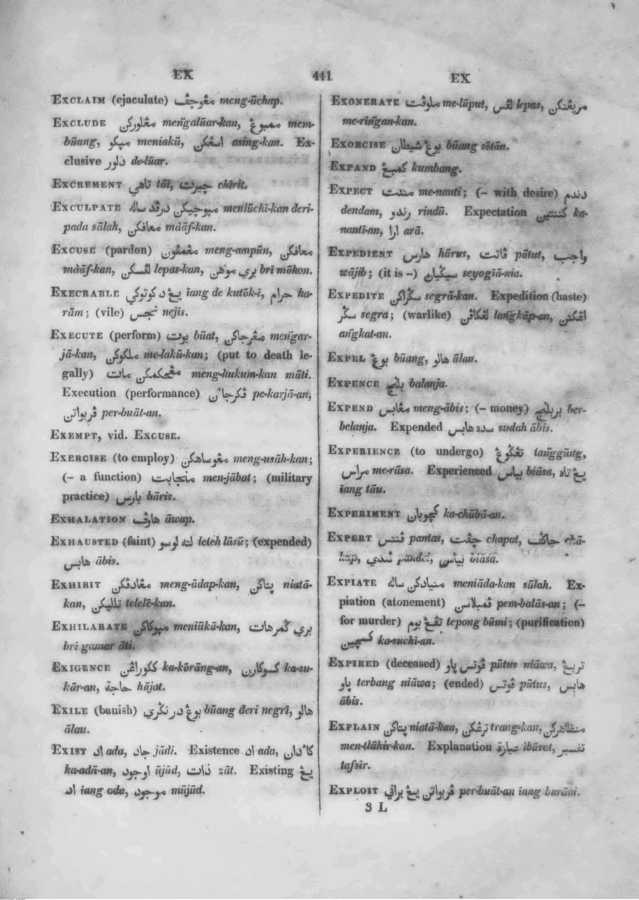 EX 441 EX
EXCLAIM (ejaculate) مڠوچف meng-ūchap.
EXCLUDE مڠلورکن meng̃alūar-kan, ممبوڠ mem-
būang, مپکو meniakū, اسڠکن asing-kan. Ex-
clusive دلور de-lūar.
EXCREMENT تاهي tāī, چيريت chērit.
EXCULPATE مپوچيکن درڤد ساله meniūchī-kan deri-
pada sālah, معافکن māāf-kan.
EXCUSE (pardon) مڠمڤون meng-ampūn, معافکن
māāf-kan, لڤسکن lepas-kan, بري موهن brī mōhon.
EXECRABLE يڠ دکوتوکي iang de kutōk-i, حرام ha-
rām; (vile) نجس nejis.
EXECUTE (perform) بوت būat, مڠرجاکن meng̃ar-
jā-kan, ملکوکن me-lakū-kan; (put to death le-
gally) مڠحکمکن مات meng-hukum-kan māti.
Execution (performance) ڤکرجاءن pe-karjā-an,
ڤربواتن per-buāt-an.
EXEMPT, vid. EXCUSE.
EXERCISE (to employ) مڠوساهکن meng-usāh-kan;
(– a function) منجابت men-jābat; (military
practice) بارس bāris.
EXHALATION هاوڤ āwap.
EXHAUSTED (faint) لته لوسو leteh lāsū; (expended)
هابس ābis.
EXHIBIT مڠادڤکن meng-ādap-kan, پتاکن niatā-
kan, تلاليکن telelē-kan.
EXHILARATE مپوکاکن meniūkā-kan, بري گمرهات
brī gamar āti.
EXIGENCE ککوراڠن ka-kōrāng-an, کسوکارن ka-su-
kār-an, حاجة hājat.
EXILE (banish) بوڠ در نگري būang deri negrī, هالو
ālau.
EXIST اد ada, جاد jādi. Existence اد ada, کادان
ka-adā-an, اوجود ūjūd, ذات zāt. Existing يڠ
اد iang ada, موجود mūjūd.
EXONERATE ملوڤت me-lūput, لڤس lepas, مريڠنکن
me-ring̃an-kan.
EXORCISE بوڠ شيطان būang sētān.
EXPAND کمبڠ kumbang.
EXPECT مننت me-nanti; (– with desire) دندم
dendam, رندو rindū. Expectation کننتين ka-
nantī-an, ارا arā.
EXPEDIENT هارس hārus, ڤاتت pātut, واجب
wājib; (it is –) سيگيان seyogiā-nia.
EXPEDITE سگراکن segrā-kan. Expedition (haste)
سگر segra; (warlike) لڠکاڤن lang̃kāp-an, اڠکتن
ang̃kat-an.
EXPEL بوڠ būang, هالو ālau.
EXPENCE بلنج balanja.
EXPEND مڠابس meng-ābis; (– money) بربلنج ber-
belanja. Expended سده هابس sudah ābis.
EXPERIENCE (to undergo) تڠگوڠ tang̃gūng,
مراس me-rāsa. Experienced بياس biāsa, يڠ تاه
iang tāu.
EXPERIMENT کچوبان ka-chūbā-an.
EXPERT ڤنتس pantas, چڤت chapat, چاکڤ chā-
kap, ڤندي pandei, بياس biāsa.
EXPIATE منيادکن ساله meniāda-kan sālah. Ex-
piation (atonement) ڤمبلاسن pem-balās-an; (–
for murder) تڤڠ بوم tepong būmi; (purification)
کسچين ka-suchī-an.
EXPIRED (deceased) ڤوتس پاو pūtus niāwa, تربڠ
پاو terbang niāwa; (ended) ڤوتس pūtus, هابس
ābis.
EXPLAIN پتاکن niatā-kan, ترڠکن trang-kan, منظاهرکن
men-tlāhir-kan. Explanation عبارة ibāret, تفسير
tafsīr.
EXPLOIT ڤربواتن يڠ براني per-buāt-an iang barāni.
3 L